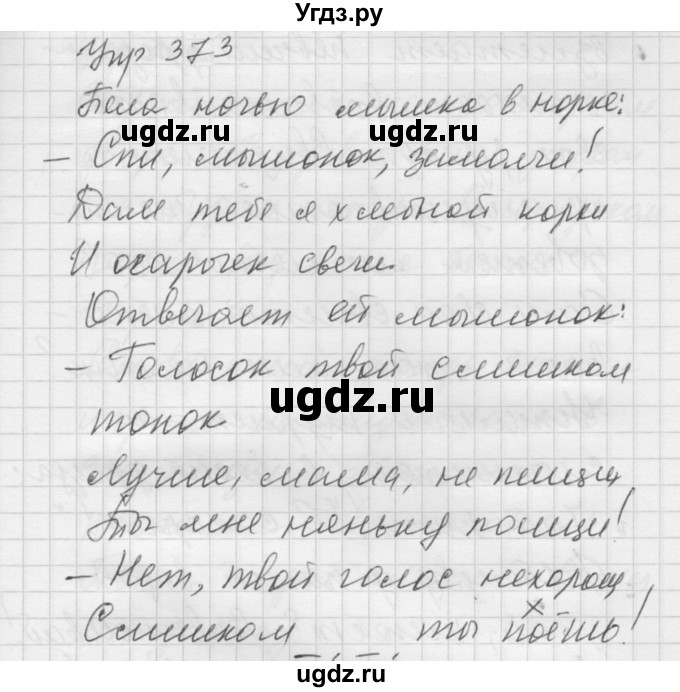 Угдз.ру
Упр 373
Пела ночью мышка в норке:
ugdz.ru ugdz.ru
– Спи, мышонок, замолчи!
Дам тебе я хлебной корки
И огарочек свечи.
ugdz.ru
Отвечает ей мышонок:
– Голосок твой слишком
ugdz.ru
тонок
Лучше, мама, не пищи,
ugdz.ru ugdz.ru
Ты мне няньку поищи!
– Нет, твой голос нехорош,
Слишком ты поёшь!
ugdz.ru ugdz.ru